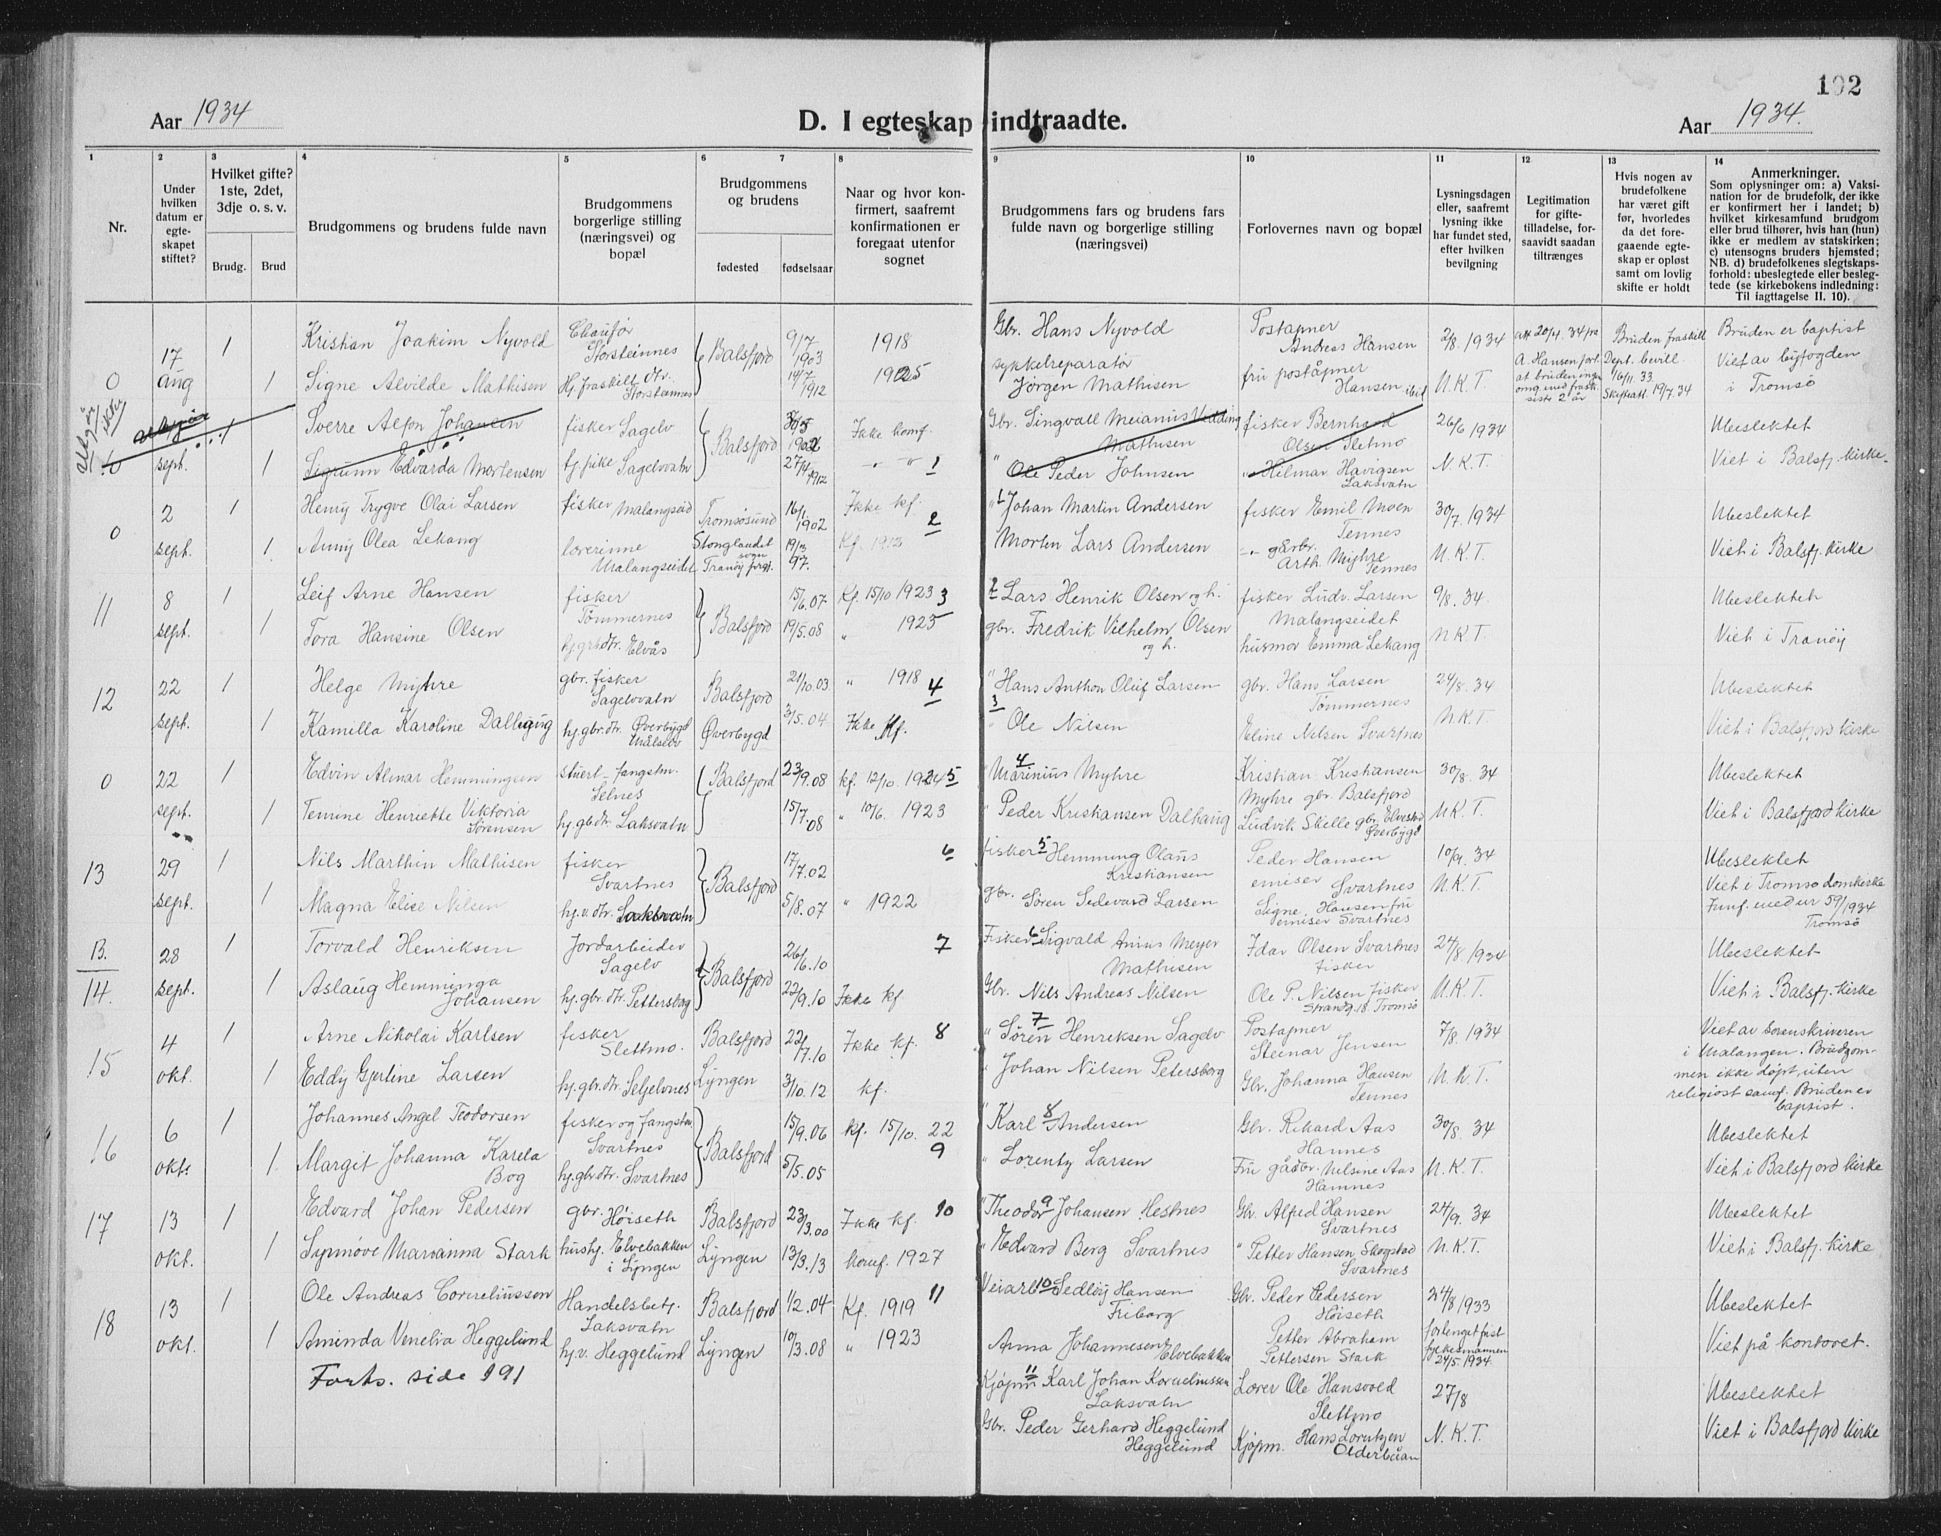 102
Aar 1934
D. I egteskap indtraadte.
Aar 1934.
1 2 3 4 5 6 7 8 9 10 11 12 13 14
Nr.
Under hvilken datum er egteskapet stiftet?
Hvilket gifte? 1ste, 2det, 3dje o. s. v.
Brudg. Brud
Brudgommens og brudens fulde navn
Brudgommens borgerlige stilling (næringsvei) og bopæl
Brudgommens og brudens
fødested fødselsaar
Naar og hvor konfirmert, saafremt konfirmationen er foregaat utenfor sognet
Brudgommens fars og brudens fars fulde navn og borgerlige stilling (næringsvei)
Forlovernes navn og bopæl
Lysningsdagen eller, saafremt lysning ikke har fundet sted, efter hvilken bevilgning
Legitimation for giftetilladelse, forsaavidt saadan tiltrænges
Hvis nogen av brudefolkene har været gift før, hvorledes da det foregaaende egteskap er opløst samt om lovlig skifte er holdt
Anmerkninger.
Som oplysninger om: a) Vaksination for de brudefolk, der ikke er konfirmert her i landet; b) hvilket kirkesamfund brudgom eller brud tilhører, hvis han (hun) ikke er medlem av statskirken; c) utensogns bruders hjemsted; NB. d) brudefolkenes slegtskapsforhold: ubeslegtede eller beslegtede (se kirkebokens indledning: Til iagttagelse II. 10).
0 17 aug 1 Kristian Joakim Nyvold Chaufør Storsteinnes Balsfjord 9/7 1903 1918
1 Signe Alvilde Mathisen Hj. fraskilt dtr. Storsteinnes 14/7 1912 1925
sept. 1 Sverre Alfon Johansen fisker Sagelv Balsfjord 30/5 Ikke konf.
1 Sigrunn Edvarda Mortensen Sagelvvatn 27/4 1912 " " 1
0 2 sept. 1 Henry Trygve Olai Larsen fisker Malangseid Tromsøsund 16/1 1902 Ikke kf. 2
1 Anny Olea Lekang lærerinne Malangseidet Stonglandet sogn Tranøy prgj. 19/3 97. Kf. 1913
11 8 sept. 1 Leif Arne Hansen fisker Tømmernes Balsfjord 15/6.07 kf. 15/10 1923 3
1 Tora Hansine Olsen Elvås 19/5.08 " 1923
12 22 sept. 1 Helge Myhre gbr. fisker Sagelvvatn Balsfjord 21/10.03 " 1918 4
1 Kamilla Karoline Dalhaug hj. gbr. dtr. Øverbygd Målselv Øverbygd 3/5.04 Ikke kf.
0 22 sept. 1 Edvin Almar Hemmingsen stuert-fangstm. Selnes Balsfjord 23/9.08 kf. 12/10.1924 5
1 Temine Henriette Viktoria Sørensen Laksvatn 15/7.08 " 10/6. 1923
13 29 sept. 1 Nils Marthin Mathisen fisker Svartnes Balsfjord 17/7.02 6
1 Magna Elise Nilsen hj. v. dtr. Laksvatn 5/8.07 " 1922
B. 14. 28 sept. 1 Torvald Henriksen Jordarbeider Sagelv Balsfjord 26/6.10 7
1 Aslaug Hemminga Johansen hj. gbr. dtr. Pettersberg 22/9.10 Ikke kf
15 4 okt. 1 Arne Nikolai Karlsen fisker Slettmo. Balsfjord 22/7.10 Ikke kf. 8
1 Eddy Gjertine Larsen hj. gbr. dtr. Seljelvnes Lyngen 3/10.12 kf.
16 6 okt. 1 Johannes Angel Teodorsen fisker og fangstm Svartnes Balsfjord 15/9.06 kf. 15/10. 22
1 Margit Johanna Karela Bog hj. gbr. dtr. Svartnes 5/5.05 9
17 13 okt. 1 Edvard Johan Pedersen gbr. Høiseth Balsfjord 23/3.00 Ikke kf. 10
1 Synnøve Marianna Stark hushj. Elvebakken i Lyngen Lyngen 13/3.13 konf. 1927
18 13 okt. 1 Ole Andreas Corneliussen Handelsbetj. Laksvatn Balsfjord 1/2.04 Kf. 1919 11
1 Aminda Venelia Heggelund hj. v. Heggelund Lyngen 10/3.08 " 1923
Forts. side 191
Gbr. Hans Nyvold Postapner Andreas Hansen 2/8. 1934 Bruden fraskilt Bruden er baptist
sykkelreparatør Jørgen Mathisen fru postapner Hansen ibid N.K.T. Dept. bevill. 16/11. 33. Skifteatt. 19/7.34 Viet av byfogden i Tromsø
Gbr. Singvall Meianius Vedding Mathisen fisker Bernhard Olsen Sletmo 26/6 1934 Ubeslektet
" Ole Peder Johnsen " Hilmar Havigsen Laksvatn N.K.T. Viet i Balsfj. kirke.
1 Johan Martin Andersen fisker Emil Moen Tennes 30/7. 1934 Ubeslektet
Morten Lars Andersen gårbr. Arth. Myhre Tennes N.K.T. Viet i Balsfj. kirke
2 Lars Henrik Olsen og h. fisker Ludv. Larsen Malangseidet 9/8. 34. Ubeslektet
gbr. Fredrik Vilhelm Olsen og h. husmor Emma Lekang N.K.T. Viet i Tranøy
" Hans Anthon Oluf Larsen gbr. Hans Larsen Tømmernes 24/8. 34 Ubeslektet
3 " Ole Nilsen Eline Nilsen Svartnes N.K.T. Viet i Balsfjord kirke
4 " Marinius Myhre Kristian Kristiansen Myhre gbr. Balsfjord 30/8. 34 Ubeslektet
" Peder Kristiansen Dalhaug Ludvik Skille gbr. Elvestad Øverbygd N.K.T. Viet i Balsfjord kirke
fisker 5 Hemming Olaus Kristiansen Peder Hansen Svartnes 10/9. 34 Ubeslektet
gbr. Søren Sedevard Larsen Signe Hansen fru Svartnes N.K.T. Viet i Tromsø domkirke Junf. med nr 59/1934 Tromsø
Fisker 6 Sigvald Anius Meyer Mathisen Idar Olsen Svartnes fisker 24/8 1934 Ubeslektet
Gbr. Nils Andreas Nilsen Ole P. Nilsen fisker Strandg. 18. Tromsø N.K.T. Viet i Balsfj. kirke
7 " Søren Henriksen Sagelv Postapner Steinar Jensen 7/8. 1934 Viet av sorenskriveren i Malangen. Brudgommen ikke døpt, uten religiøst samf. Bruden er baptist.
" Johan Nilsen Petersborg Gbr. Johanna Hansen Tennes N.K.T.
8 " Karl Andersen Gbr. Rikard Aas Hamnes 30/8. 34 Ubeslektet
" Lorentz Larsen Fru gårdbr. Nilsine Aas Hamnes N.K.T. Viet i Balsfjord kirke
9 " Theodor Johansen Hestnes Gbr. Alfred Hansen Svartnes 24/9. 34 Ubeslektet
" Edvard Berg Svartnes " Petter Hansen Skogstad Svartnes N.K.T. Viet i Balsfj. kirke
Veiarb 10 Sedløy Hansen Friborg Gbr. Peder Pedersen Høiseth 24/8 1933 Ubeslektet
Anna Johannesen Elvebakken Petter Abraham Pettersen Stark forlenget frist fylkesmannen 24/5. 1934. Viet på kontoret.
Kjøpm. 11 Karl Johan Korneliussen Laksvatn Lærer Ole Hansvold Slettmo 27/8 Ubeslektet
Gbr. Peder Gerhard Heggelund Heggelund Kjøpm. Hans Lorentzen Olderbåan N.K.T. Viet i Balsfjord kirke